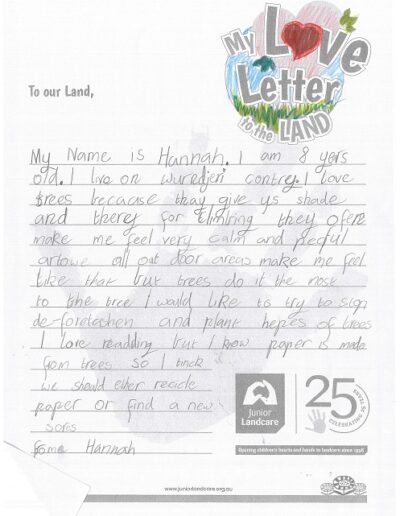 My Love
Letter
to the LAND
To our Land,
My Name is Hannah. I am 8 yers
old. I live on wuredjeri contrey. I love
trees because thay give us shade
and therey for climbring they ofern
make me feel very calm and pecful
artowe all out door areas make me feel
like that but trees do it the most
to the tree I would like to try to stop
de-foreteshen and plant hepes of trees
I love readding but I know paper is made
from trees so I thinck
we should ether recicle
paper or find a new
sores
frome Hannah
Junior
Landcare
25
CELEBRATING YEARS
Opening children's hearts and hands to landcare since 1998
www.juniorlandcare.org.au